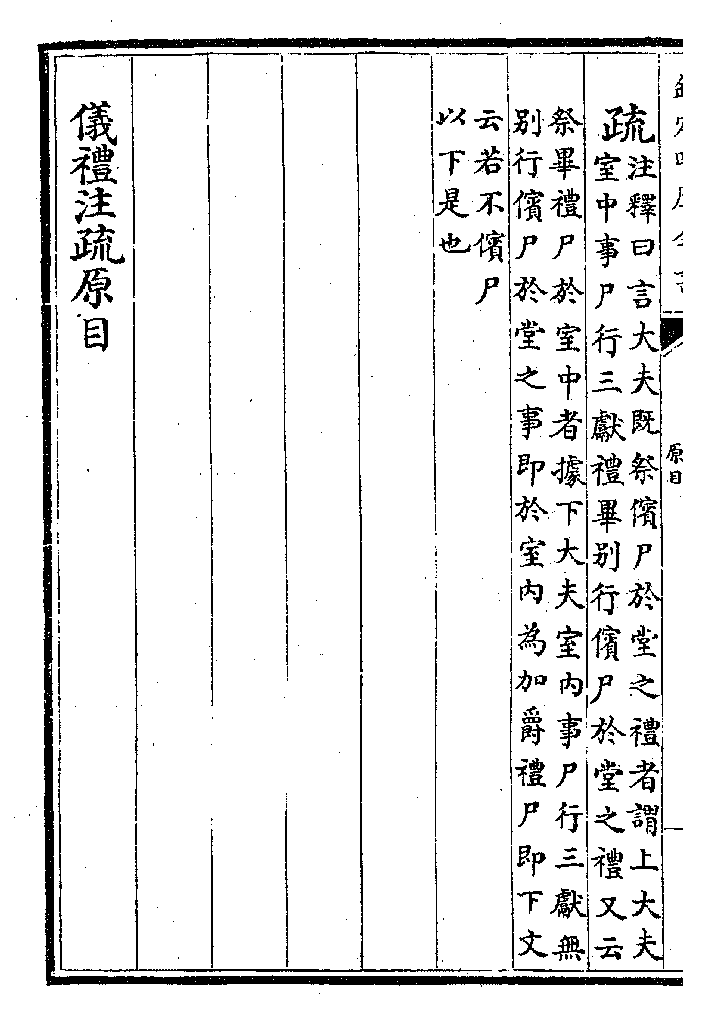 原目
疏注釋曰言大夫既祭儐尸於堂之禮者謂上大夫
室中事尸行三獻禮畢别行儐尸於堂之禮又云
祭畢禮尸於室中者據下大夫室内事尸行三獻無
别行儐尸於堂之事即於室内為加爵禮尸即下文
云若不儐尸
以下是也
儀禮注疏原目